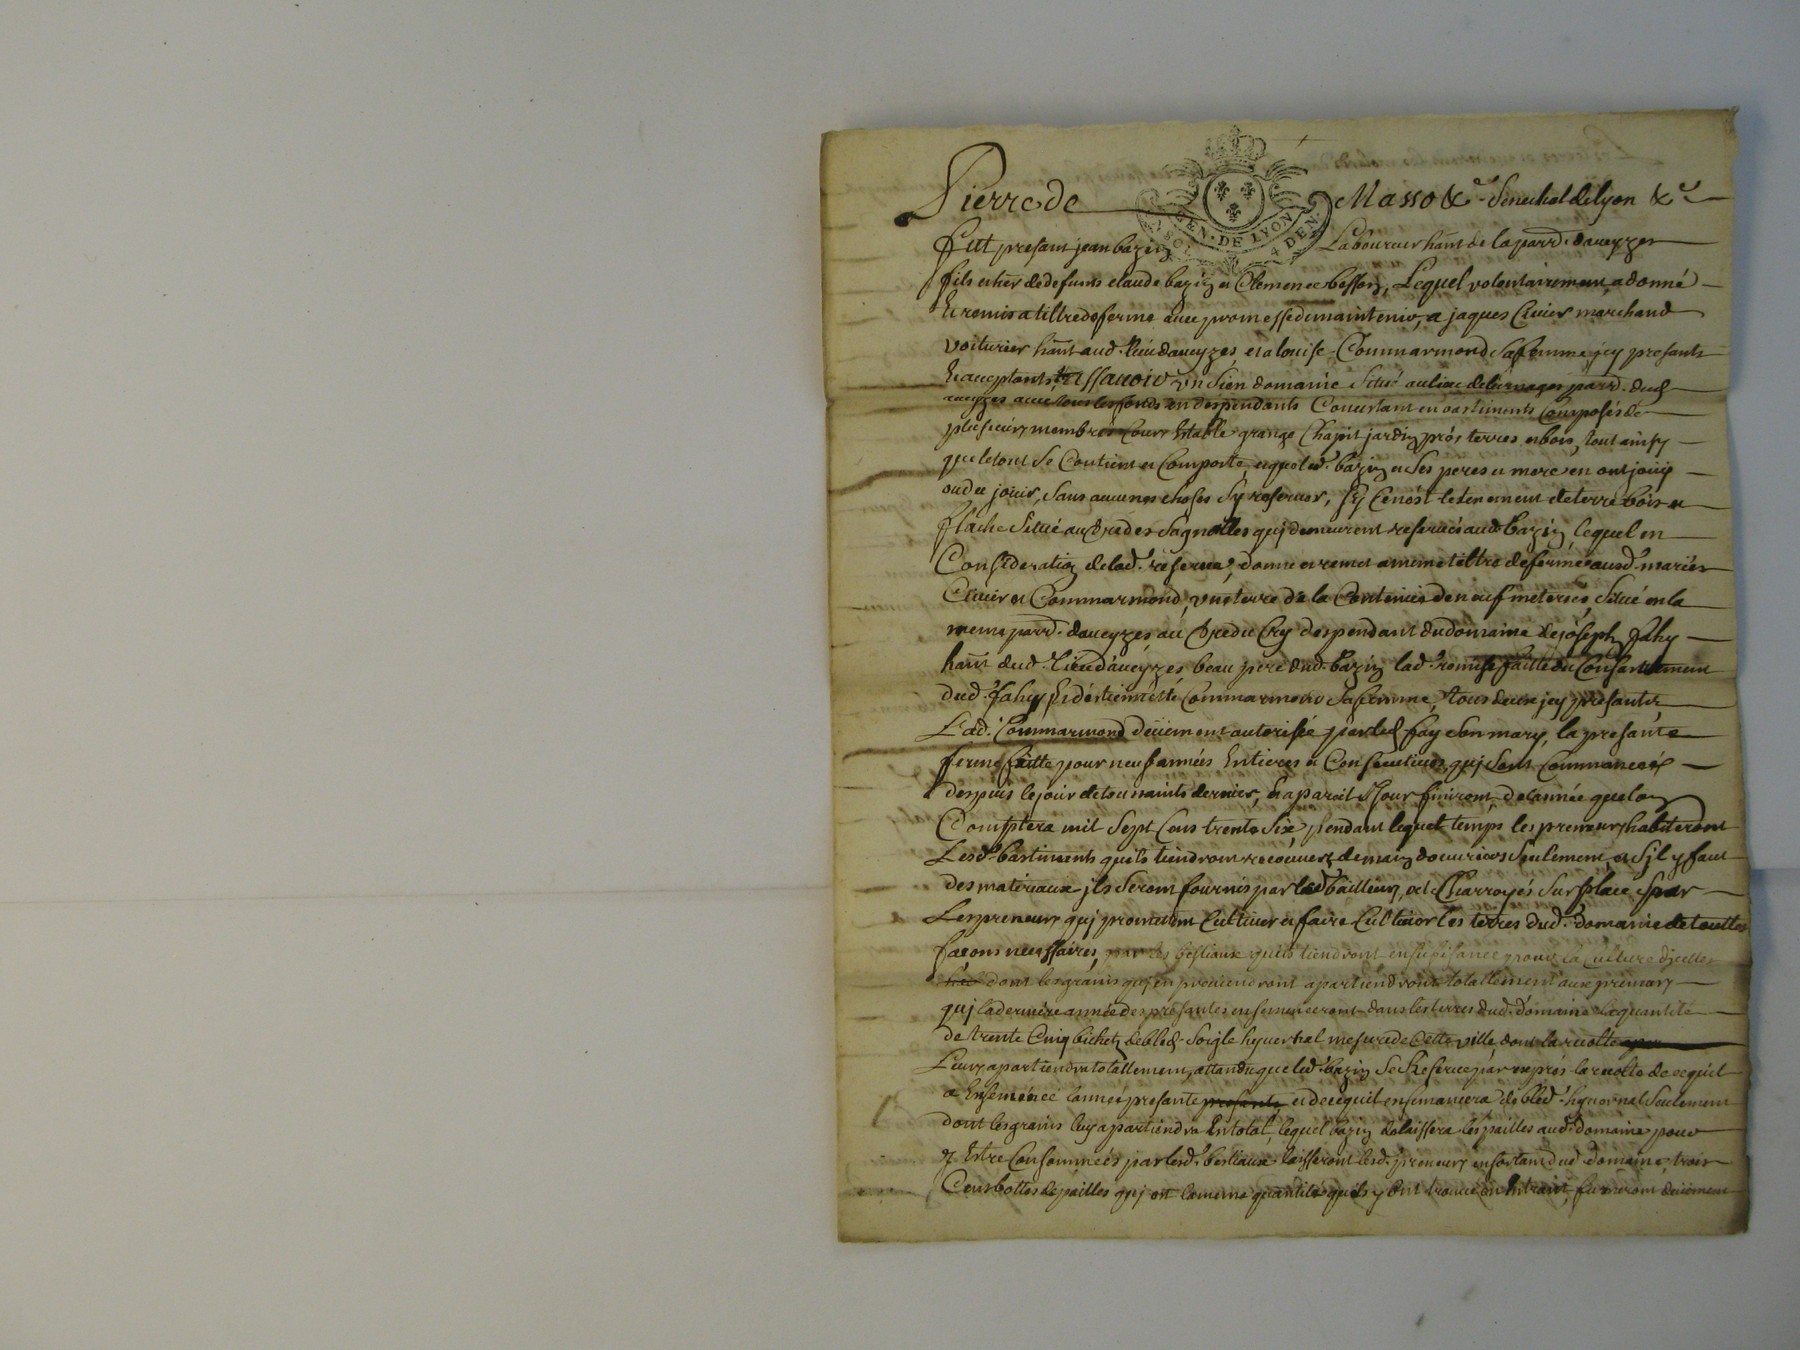 Pierre de Masso &c. Senechal de lyon &c.
GEN · DE LYON
SOL 4 DEN
Fut present jean bazin Laboureur hant de la parr. daveyzes
fils et her de defunts claude bazin et Clemence besson, Lequel volontairement a donné
Et remis a tiltre de ferme avec promesse de maintenir, a jaques Cluier marchand
voiturier hant aud. lieu daveyzes, et a louise Commarmond sa femme jcy presants
Et acceptants, assavoir un sien domaine situé au lieu de parr. dud.
aveyzes avec tous les fonds en despendants Concistant en bastiments Composés de
plusieurs membres Cour Estable grange Chapit jardin prés terres et bois, tout ainsy
que le tout se Contient et Comporte, et que led. bazin et ses peres et mere en ont jouy
ou du jouir, sans aucunes choses sy reserver, sy Cenest le tenement de terre bois et
flache situé au des Sagnolles quj demeurent reservés aud. bazin, lequel en
Consideration de lad. réserve, donne et remet a meme tiltre de ferme ausd. mariés
Cluier et Commarmond, une terre de la Contenue de neuf meterées, situé en la
meme parr. daveyzes au du Cry despendant du domaine de joseph fahy
hant dud. lieu daveyzes beau pere dud. bazin lad. remise faitte du Consentement
dud. fahy Et destiennette Commarmond sa femme, tous deux jcy presants
Lad. Commarmond deüement autorisée par led. fay son mary, la presante
ferme faitte pour neuf années Entieres et Consecutives, quj sont Commancées
despuis le jour de toussaints dernier, Et a pareil jour finiront de lannée que lon
Comptera mil sept cens trente six, pendant lequel temps les preneurs habiteront
Lesd. bastiments quils tiendront recouverts de main douvriers seulement, et sjl y faut
des materiaux jls seront fournis par led. bailleur, et Charroyés sur place par
Les preneurs quj promettent Cultiver et faire Cultiver les terres dud. domaine de touttes
façons necessaires, par les bestiaux quils tiendront en sufisance pour la Culture djcelles
dont les grains quj en proviendront apartiendront totallement aux preneurs
quj la derniere année des presantes ensemenceront dans les terres dud. domaine la quantité
de trente Cinq bichets de bled seigle hyvernal mesure de Cette ville, dont la recolte
Leurs apartiendra totallement, attandu que led. bazin se Reserve par exprés la recolte de ce quil
a Ensemencé lannée presante presante et de ce quil ensemancera de bled hyvernal seulement
dont les grains luy apartiendra En total, lequel bazin délaissera les pailles aud. domaine pour
y Estre Consommées par lesd. bestiaux, laisseront lesd. preneurs en sortant dud. domaine trois
Cens bottes de pailles quj est la meme quantité quils y ont trouvé en Entrant, deüement